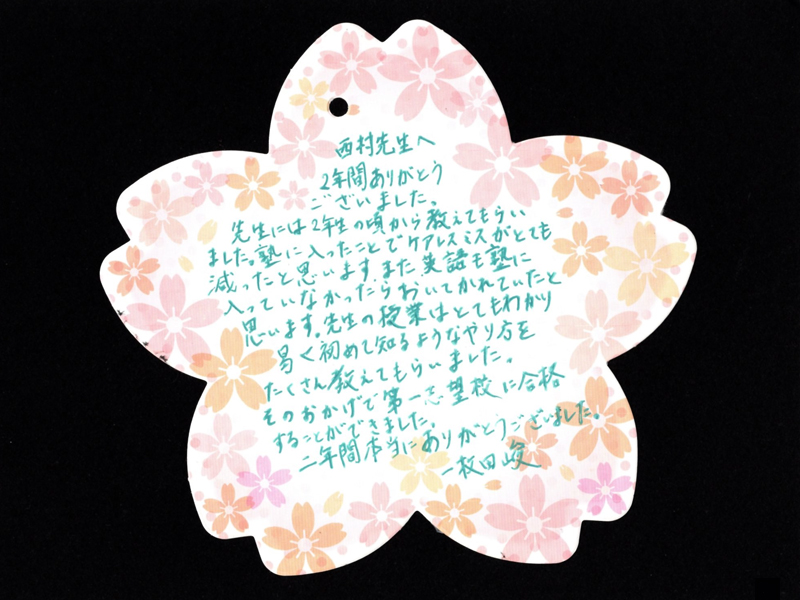 西村先生へ
2年間ありがとう
ございました。
先生には2年生の頃から教えてもらい
ました。塾に入ったことでケアレスミスがとても
減ったと思います。また英語も塾に
入っていなかったらおいてかれていたと
思います。先生の授業はとてもわかり
易く初めて知るようなやり方を
たくさん教えてもらいました。
そのおかげで第一志望校に合格
することができました。
二年間本当にありがとうございました。
一枚田 峻